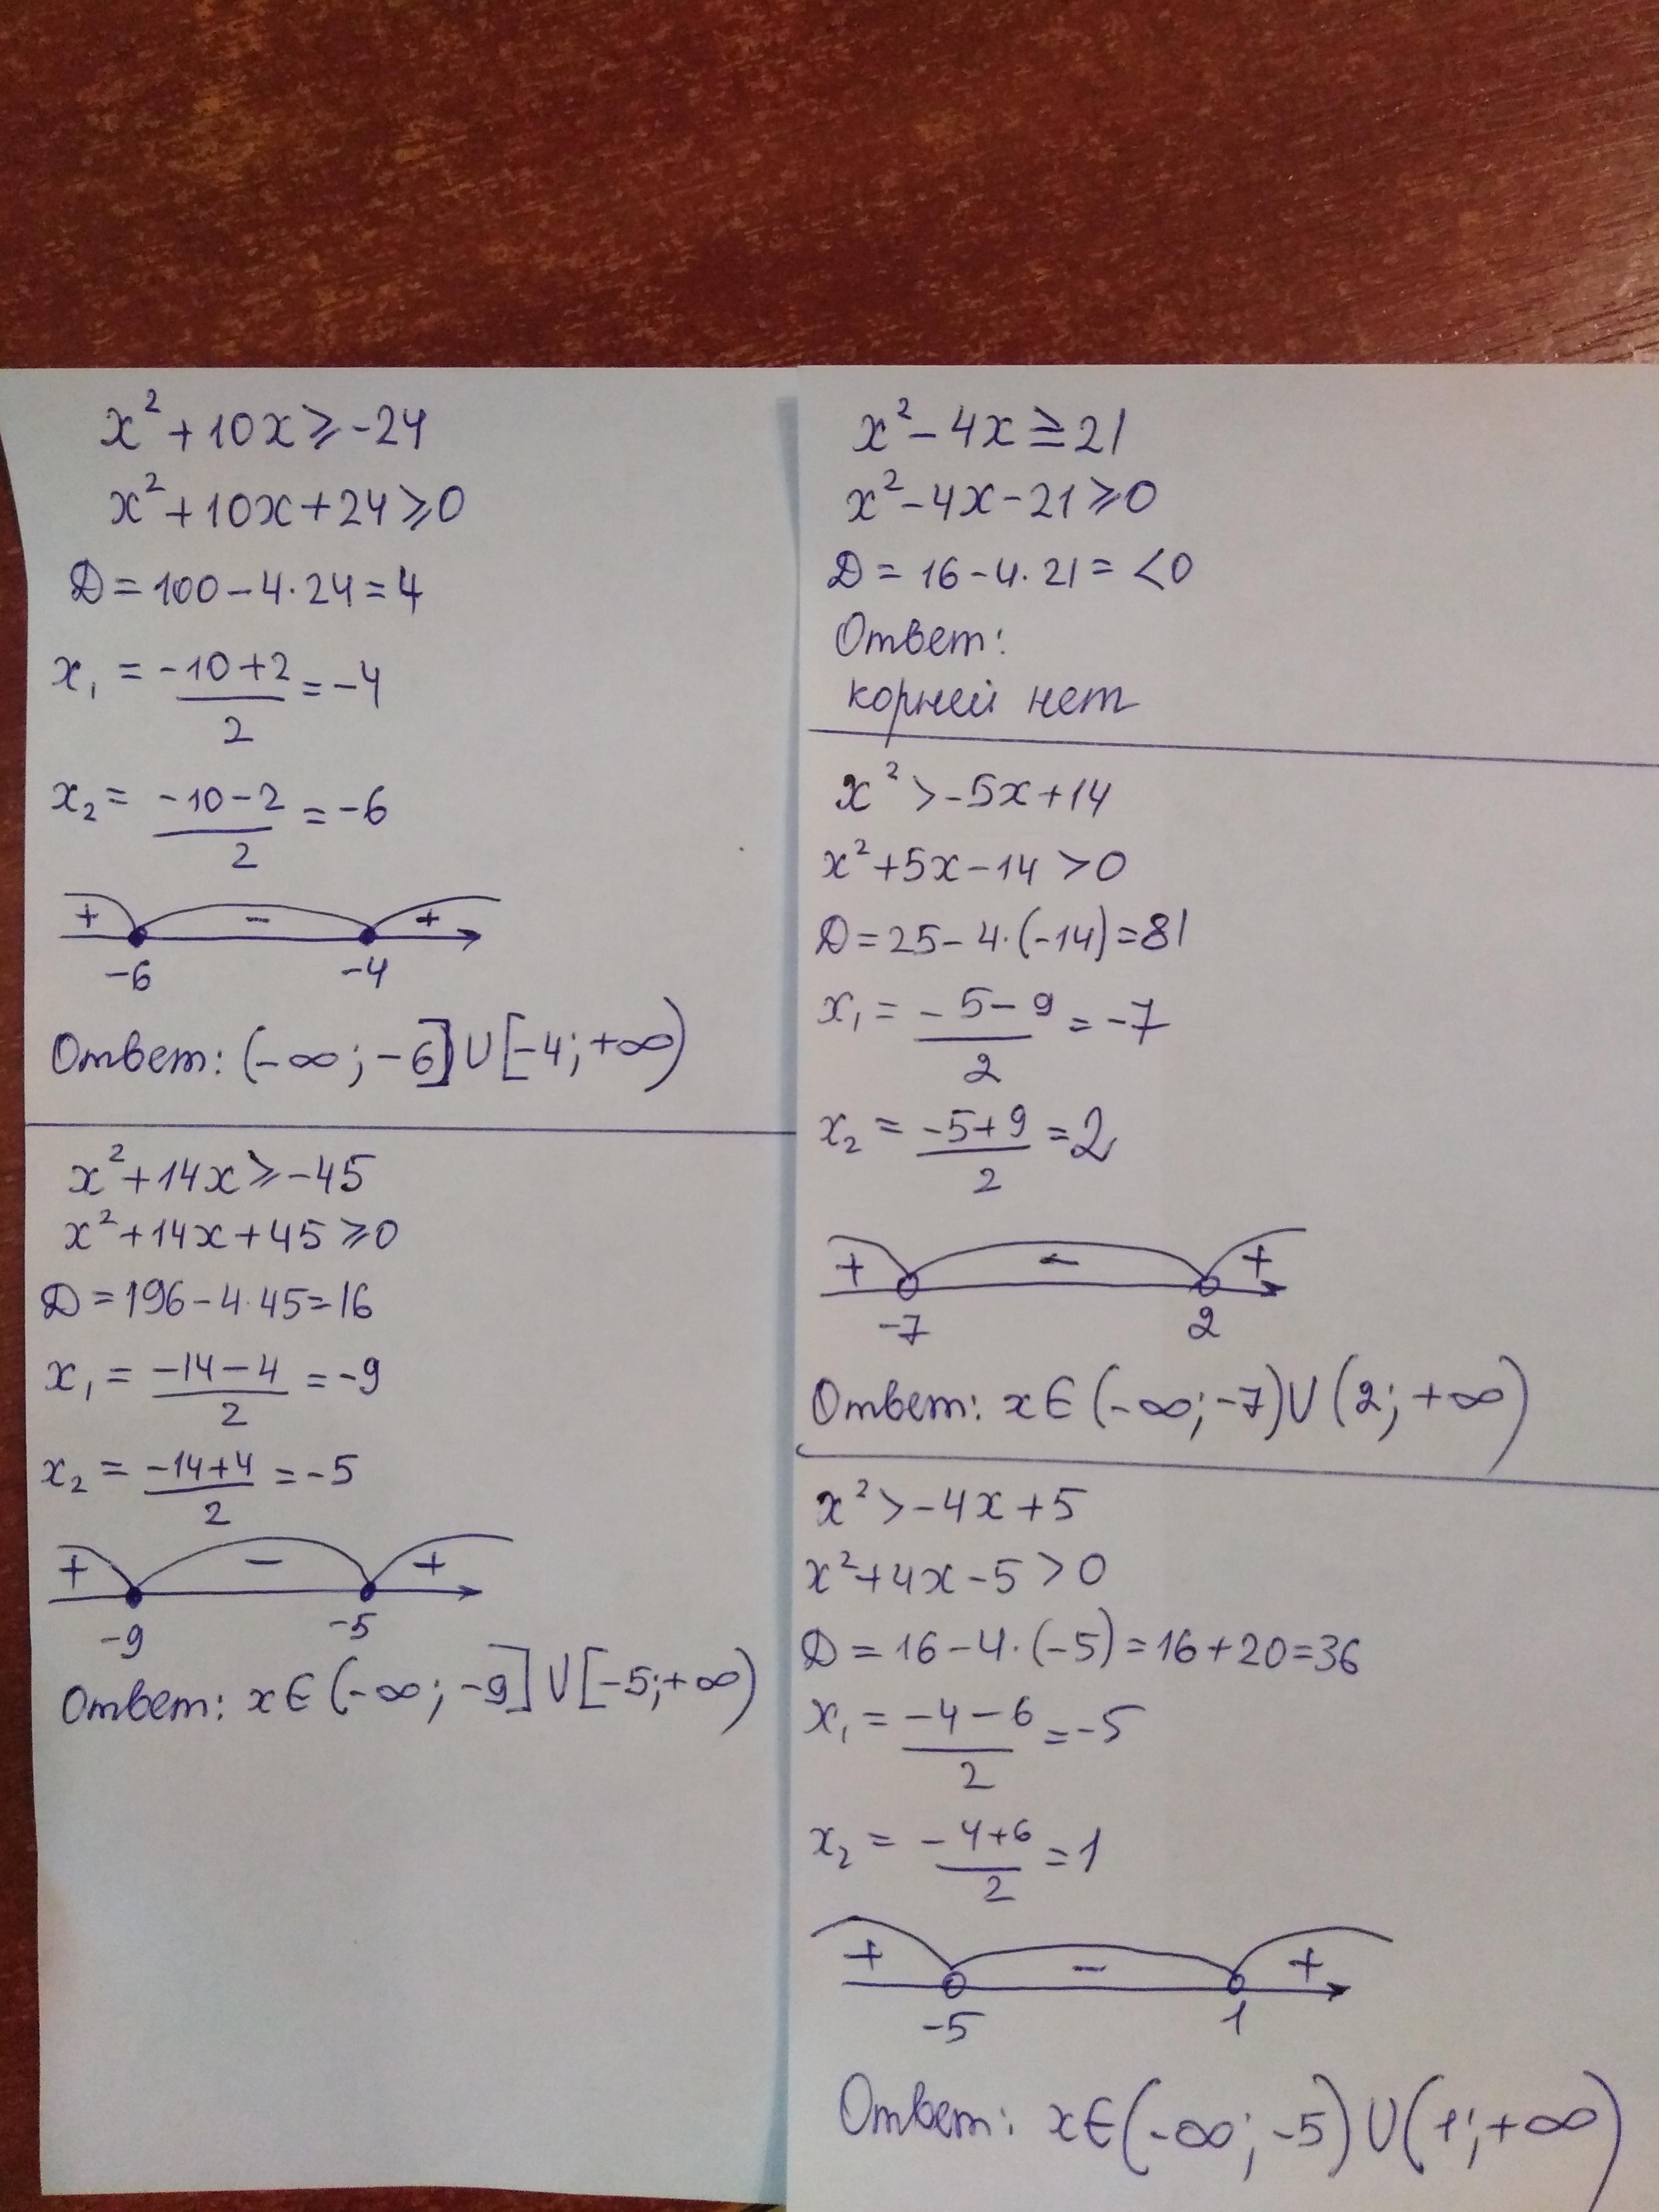 x² + 10x ⩾ -24
x² + 10x + 24 ⩾ 0
D = 100 - 4 · 24 = 4
x₁ = (-10 + 2)/2 = -4
x₂ = (-10 - 2)/2 = -6
+ - +
-6 -4
Ответ: (-∞; -6] ∪ [-4; +∞)
x² + 14x ⩾ -45
x² + 14x + 45 ⩾ 0
D = 196 - 4 · 45 = 16
x₁ = (-14 - 4)/2 = -9
x₂ = (-14 + 4)/2 = -5
+ - +
-9 -5
Ответ: x ∈ (-∞; -9] ∪ [-5; +∞)
x² - 4x ≧ 21
x² - 4x - 21 ⩾ 0
D = 16 - 4 · 21 = < 0
Ответ:
корней нет
x² > -5x + 14
x² + 5x - 14 > 0
D = 25 - 4 · (-14) = 81
x₁ = (-5 - 9)/2 = -7
x₂ = (-5 + 9)/2 = 2
+ - +
-7 2
Ответ: x ∈ (-∞; -7) ∪ (2; +∞)
x² > -4x + 5
x² + 4x - 5 > 0
D = 16 - 4 · (-5) = 16 + 20 = 36
x₁ = (-4 - 6)/2 = -5
x₂ = (-4 + 6)/2 = 1
+ - +
-5 1
Ответ: x ∈ (-∞; -5) ∪ (1; +∞)